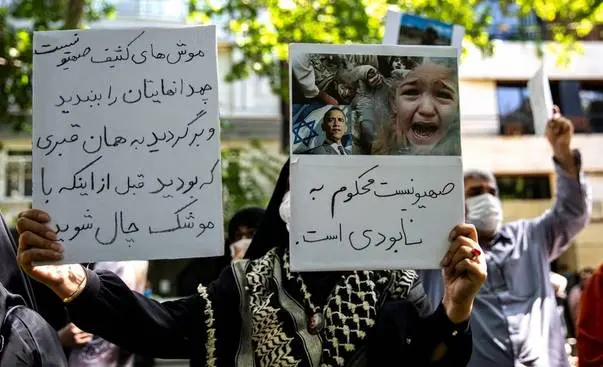 موش های کثیف صهیونیست
چمدانهایتان را ببندید
و برگردید به همان قبری
که بودید قبل از اینکه با
موشک چال شوید
صهیونیست محکوم به
نابودی است.